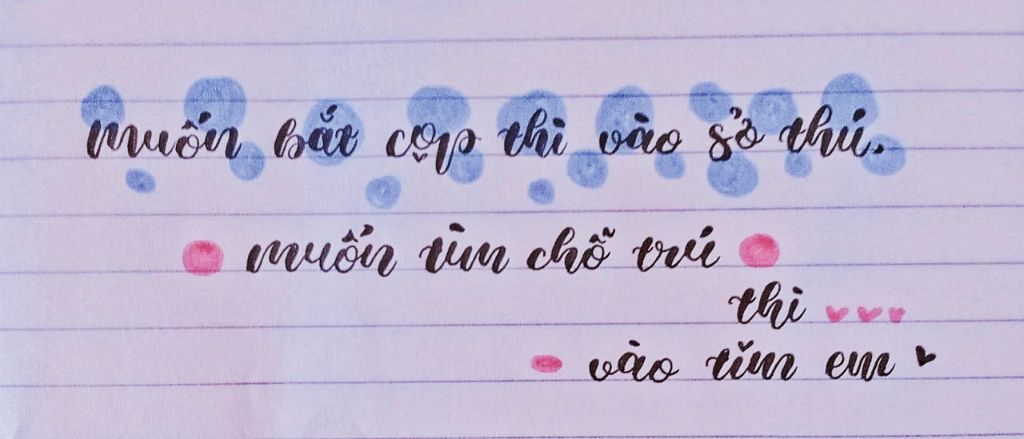 muốn bắt cọp thì vào sở thú.
muốn tìm chỗ trú
thì
vào tim em